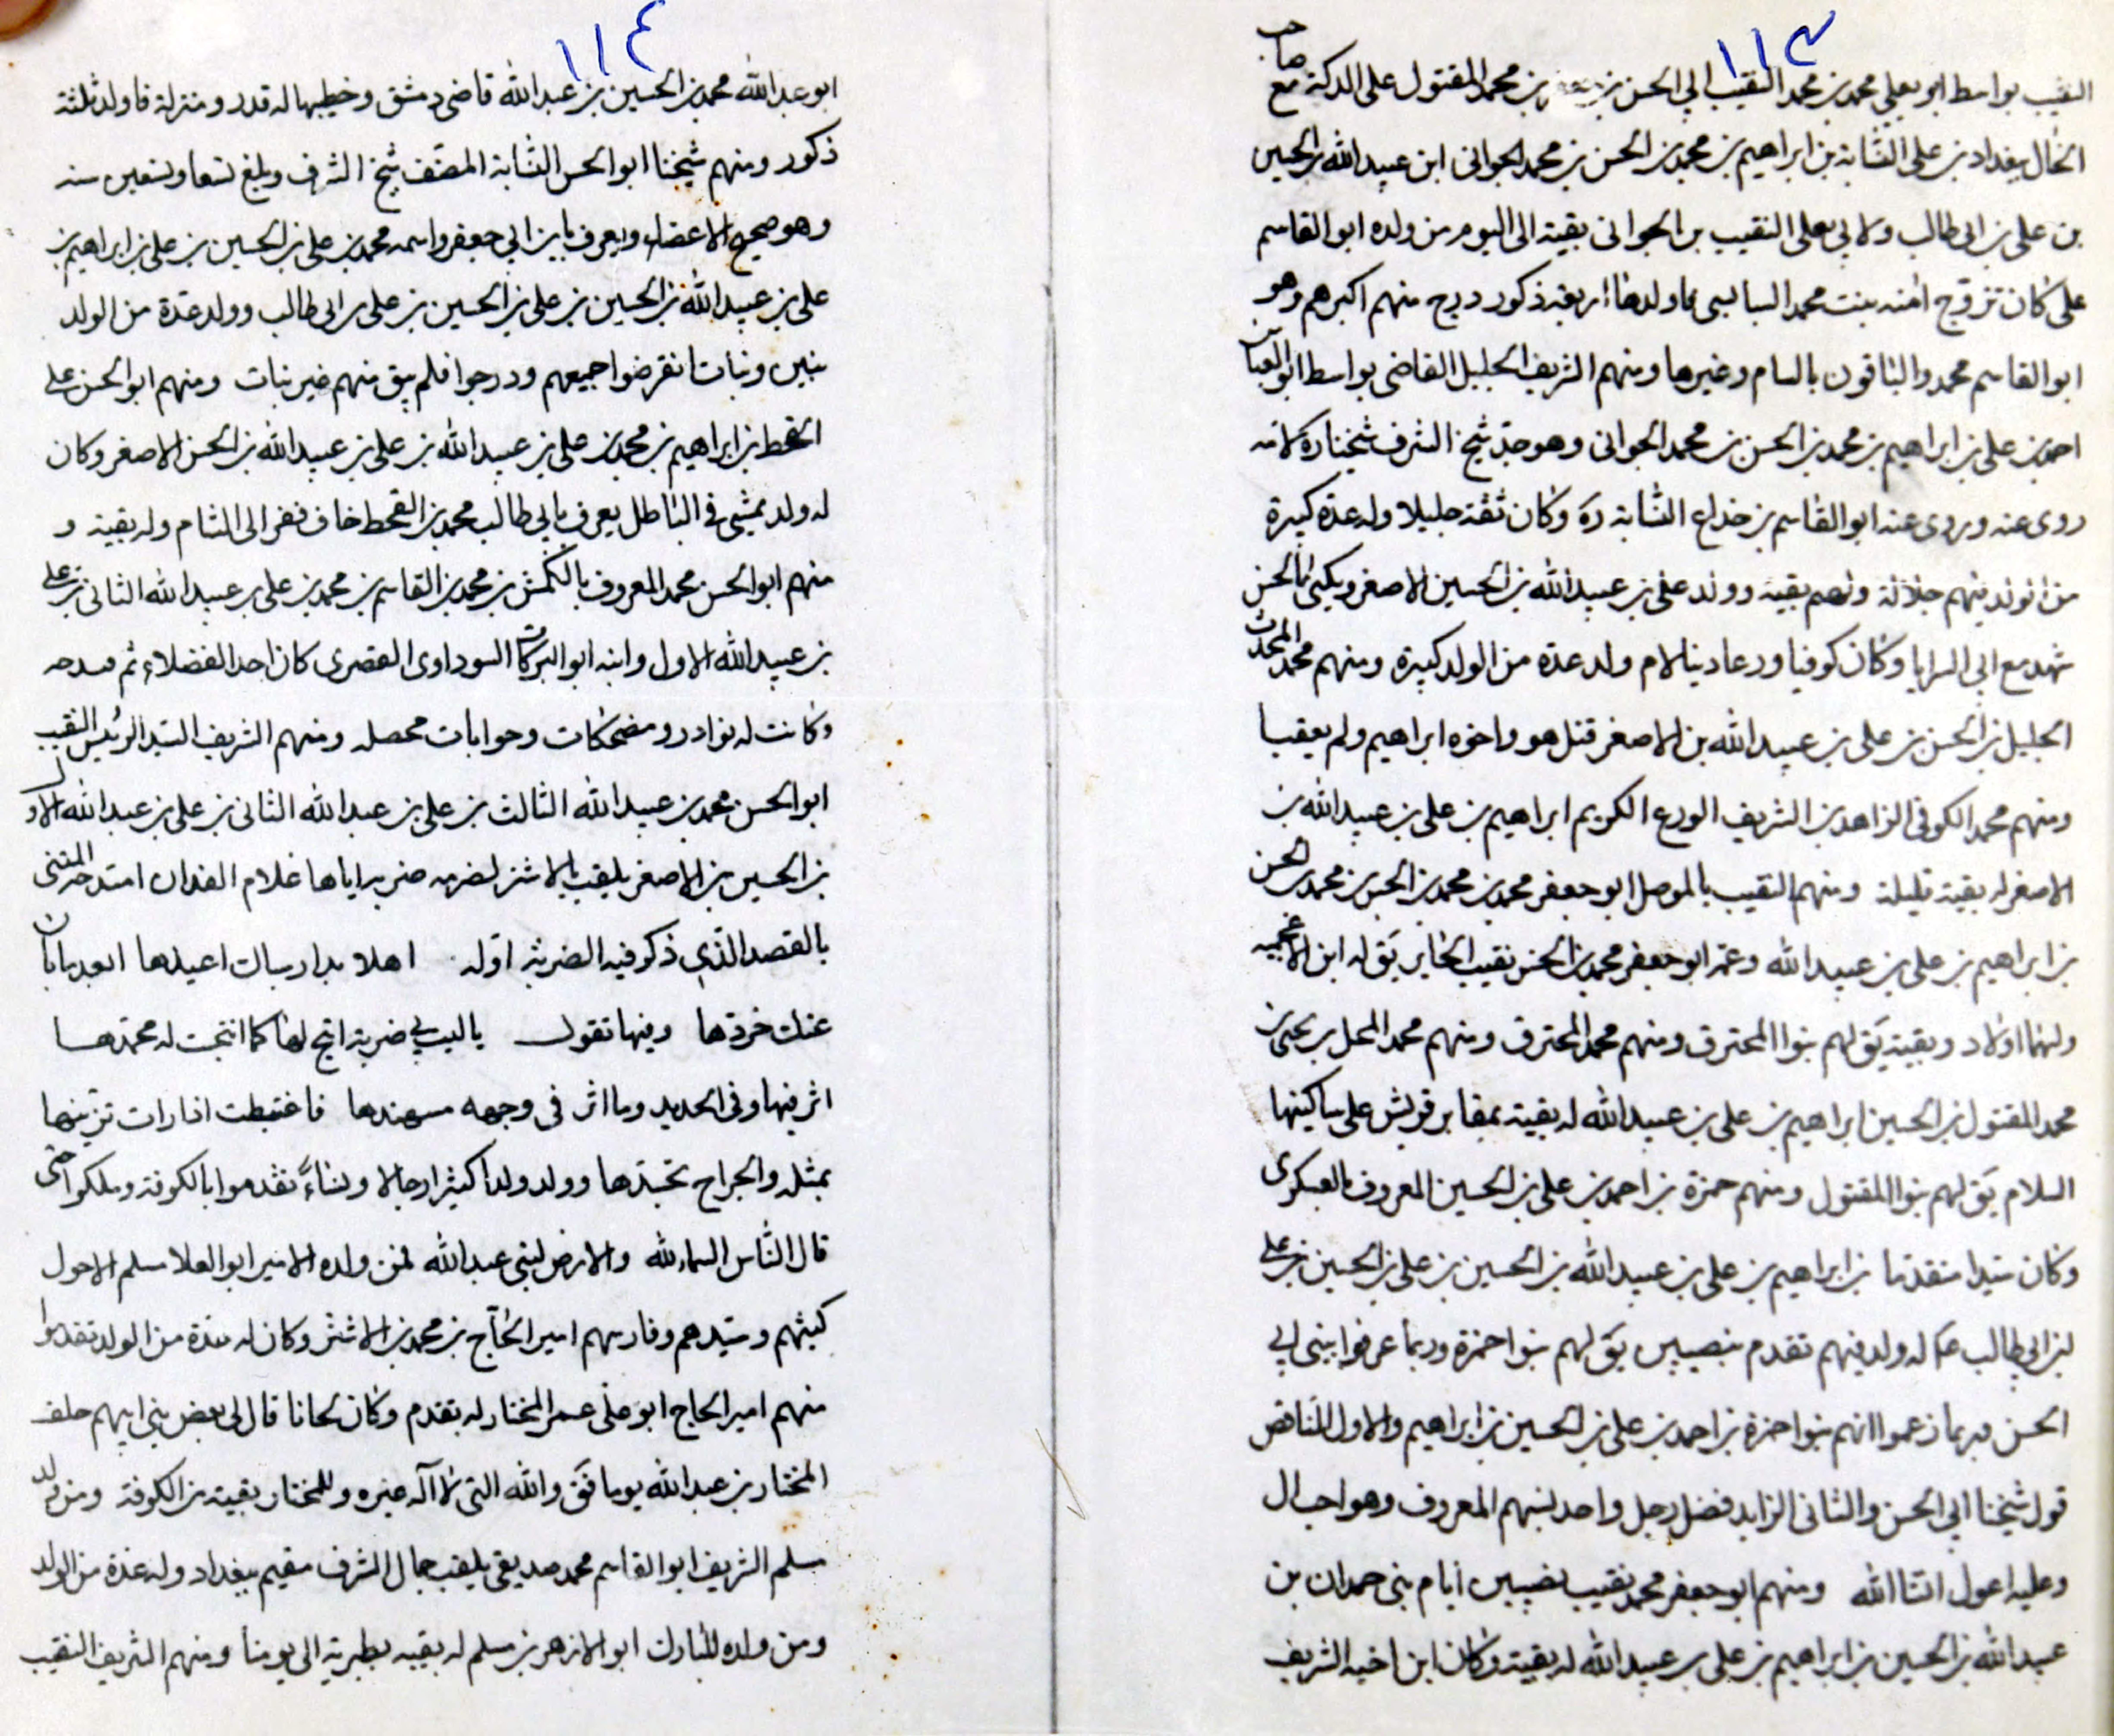 ١١٣
النقيب بواسط ابو يعلي محمد بن محمد النقيب ابي الحسن بن جعفر بن محمد المقتول على الدكة مع صاحب
الخال ببغداد بن علي النسّابة بن ابراهيم بن محمد بن الحسن بن محمد الجواني ابن عبيد الله بن الحسين
بن علي بن ابي طالب ولابي يعلى النقيب بن الجواني بقية الى اليوم من ولده ابو القاسم
علي كان تزوج امنه بنت محمد السابسي فاولدها اربعة ذكور درج منهم اكبرهم وهو
ابو القاسم محمد والباقون بالشام وغيرها ومنهم الشريف الجليل القاضي بواسط ابو العباس
احمد بن علي بن ابراهيم بن محمد بن الحسن بن محمد الجواني وهو جد شيخ الشرف شيخنا ره لامه
روى عنه وروى عنه ابو القاسم بن خداع النسّابة ره وكان ثقة جليلا وله عدة كبيرة
من الولد منهم جلالة ولهم بقية وولد علي بن عبيد الله بن الحسين الاصغر ويكنى بالحسن
شهد مع ابي السرايا وكان كوفيا ورعا دينا لام ولد عدة من الولد كبيرة ومنهم محمد المحدث
الجليل بن الحسن بن علي بن عبيد الله بن الاصغر قتل هو واخوه ابراهيم ولم يعقبا
ومنهم محمد الكوفي الزاهد بن الشريف الورع الكريم ابراهيم بن علي بن عبيد الله بن
الاصغر له بقية قليلة ومنهم النقيب بالموصل ابو جعفر محمد بن محمد بن الحسن بن محمد بن الحسن
بن ابراهيم بن علي بن عبيد الله وعمه ابو جعفر محمد بن الحسن نقيب الحاير يق له ابن الاعجميه
ولهما اولاد وبقية يق لهم بنوا المحترق ومنهم محمد المحترق ومنهم محمد المحل بن يحيى بن
محمد المقتول بن الحسين ابراهيم بن علي بن عبيد الله له بقية بمقابر قريش على ساكنيها
السلام يق لهم بنوا المقتول ومنهم حمزة بن احمد بن علي بن الحسين المعروف بالعسكري
وكان سيدا متقدما بن ابراهيم بن علي بن عبيد الله بن الحسين بن علي بن الحسين بن علي
بن ابي طالب ع له ولد فيهم تقدم بنصيبين يق لهم بنوا حمزة وربما عرفوا ببني ابي
الحسن وربما زعموا انهم بنوا حمزة بن احمد بن علي بن الحسين بن ابراهيم والاول الناقص
قول شيخنا ابي الحسن والثاني الزايد فضل رجل واحد نسبهم المعروف وهو احب ال
وعليه اعول انشا الله ومنهم ابو جعفر محمد نقيب نصيبين ايام بني حمدان بن
عبد الله بن الحسين بن ابراهيم بن علي بن عبيد الله له بقية وكان ابن اخيه الشريف
١١٤
ابو عبد الله محمد بن الحسين بن عبد الله قاضي دمشق وخطيبها له قدر ومنزلة فاولد ثلثة
ذكور ومنهم شيخنا ابو الحسن النسّابة المصنف شيخ الشرف وبلغ تسعا وتسعين سنه
وهو صحيح الاعضاء ويعرف بابن ابي جعفر واسمه محمد بن علي بن الحسين بن علي بن ابراهيم بن
علي بن عبيد الله بن الحسين بن علي بن الحسين بن علي بن ابي طالب وولد عدّة من الولد
بنين وبنات انقرضوا جميعهم ودرجوا فلم يبق منهم غير بنات ومنهم ابو الحسن علي
القحط بن ابراهيم بن محمد بن علي بن عبيد الله بن علي بن عبيد الله بن الحسن الاصغر وكان
له ولد يمشي في الباطل يعرف بابي طالب محمد بن القحط خاف ففر الى الشام وله بقية و
منهم ابو الحسن محمد المعروف بالكمش بن محمد بن القاسم بن محمد بن علي بن عبيد الله الثاني بن علي
بن عبيد الله الاول وابنه ابو البركات السوداوى القصرى كان احد الفضلاء
وكانت له نوادر ومضحكات وجوابات محصله ومنهم الشريف السيد الرئيس النقيب
ابو الحسن محمد بن عبيد الله الثالث بن علي بن عبد الله الثاني بن علي بن عبد الله الاول
بن الحسين بن الاصغر يلقب بالاشتر لضربه ضربه اياها غلام الفدان امتدحه المتنبى
بالقصد الذي ذكر فيه الضربة اوله اهلا بدار سبات اعيدها ابعد مابان
عنك خردها وفيها تقول ياليت بي ضربة اتيح لها كما اتيحت له محمدها
اثر فيها وفي الحديد وما اثر في وجهه مهندها فاغتبطت اذا رات تزينها
بمثله والجراح تحسدها وولد ولدا كثيرا رجالا ونساءً تقدموا بالكوفة وملكوا حتى
قال الناس السماء لله والارض لبني عبد الله فمن ولده الامير ابو العلا مسلم الاحول
كبشهم وسيدهم وفارسهم امير الحاج بن محمد بن الاشتر وكان له عدة من الولد تقدموا
منهم امير الحاج ابو علي عمر المختار له تقدم وكان لحانا قال لي بعض بني ابيهم حلف
المختار بن عبد الله يوما فق والله التى لا اله غيره وللمختار بقية بن الكوفة ومن ولد
مسلم الشريف ابو القاسم محمد صديقي يلقب جمال الشرف مقيم ببغداد وله عدة من الولد
ومن ولده المبارك ابو الازهر بن مسلم له بقيه بطبرية الى يومنا ومنهم الشريف النقيب